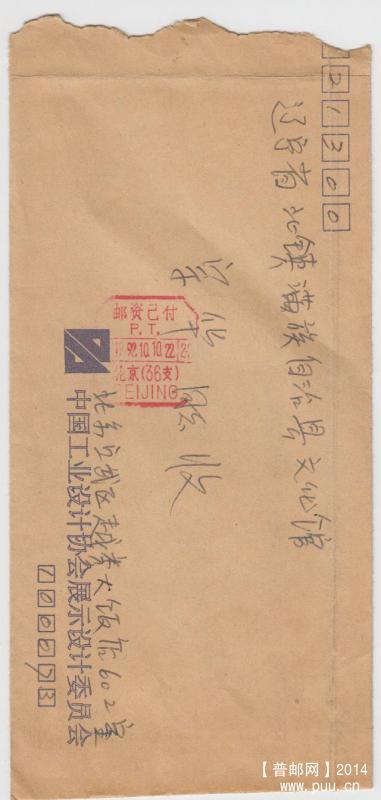 21300
辽宁省北镇满族自治县文化馆
收
邮资已付
P.T.
92.10.10.22
北京(36支)
BEIJING
北京宣武区越秀大饭店602室
中国工业设计协会展示设计委员会
100073
【普邮网】2014
www.puu.cn